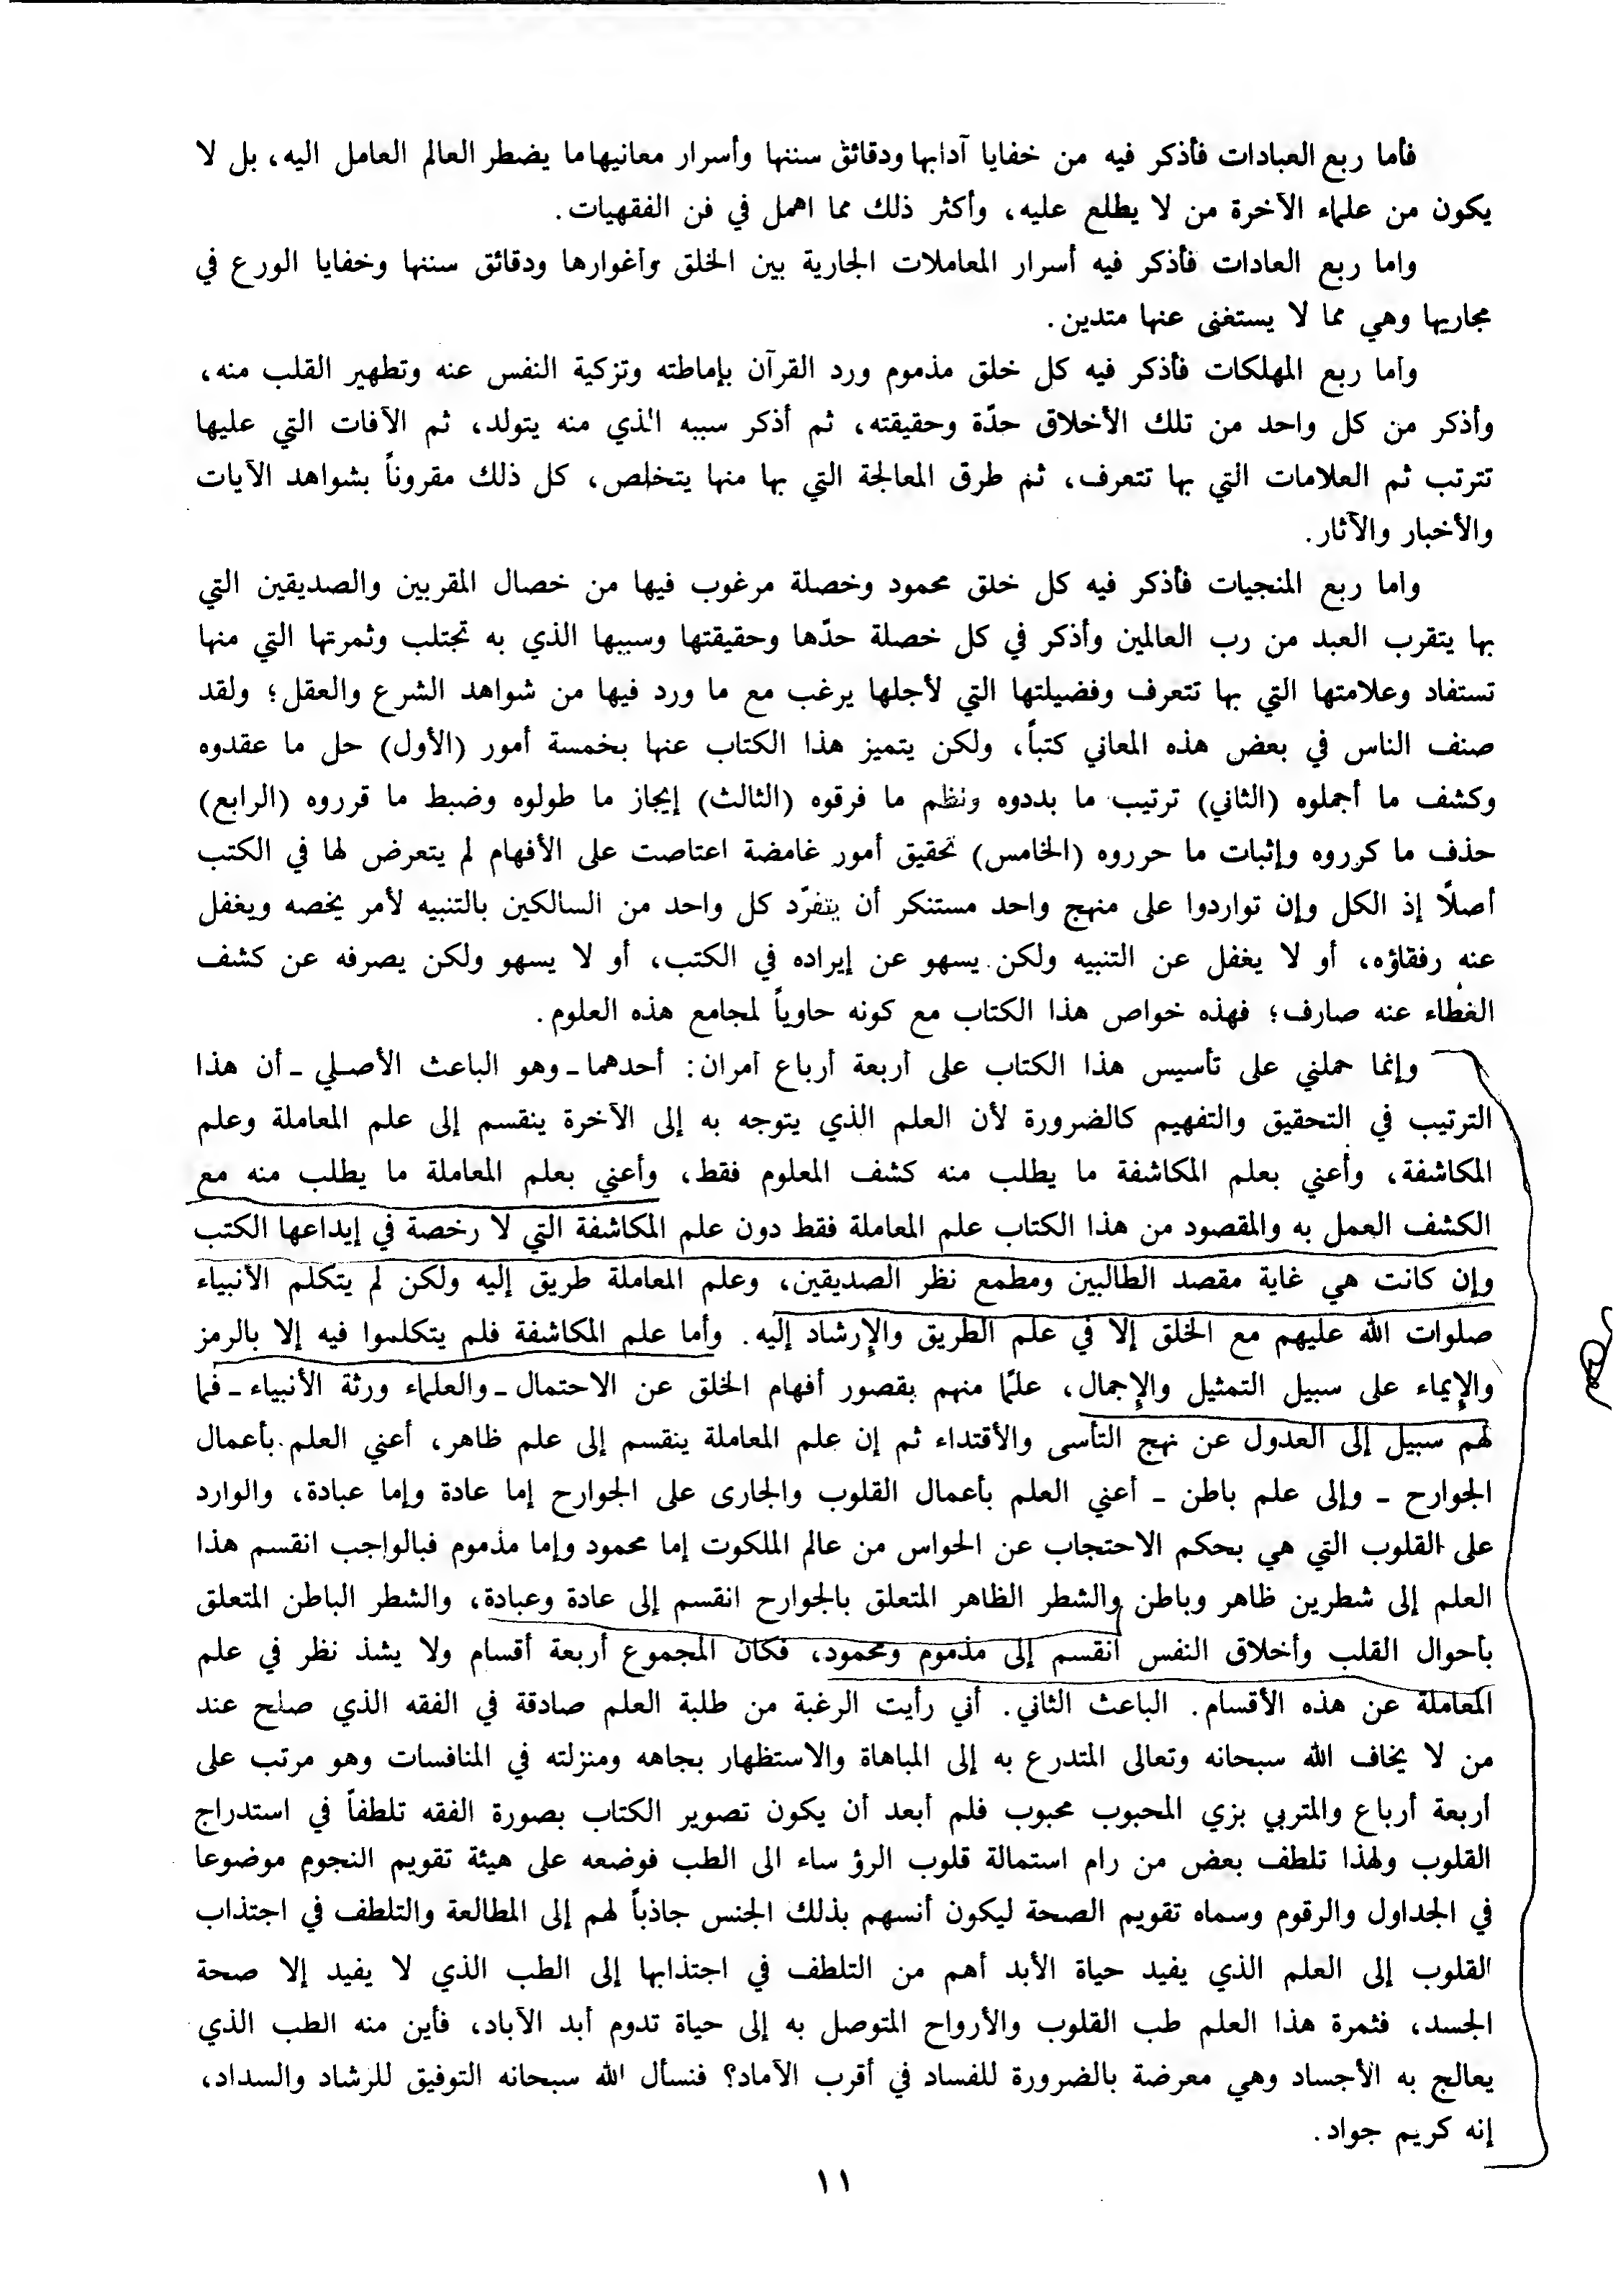 فأما ربع العبادات فأذكر فيه من خفايا آدابها ودقائق سننها وأسرار معانيها ما يضطر العالم العامل اليه، بل لا
يكون من علماء الآخرة من لا يطلع عليه، وأكثر ذلك مما اهمل في فن الفقهيات.
واما ربع العادات فأذكر فيه أسرار المعاملات الجارية بين الخلق وأغوارها ودقائق سننها وخفايا الورع في
مجاريها وهي مما لا يستغنى عنها متدين.
وأما ربع المهلكات فأذكر فيه كل خلق مذموم ورد القرآن بإماطته وتزكية النفس عنه وتطهير القلب منه،
وأذكر من كل واحد من تلك الأخلاق حدّة وحقيقته، ثم أذكر سببه الذي منه يتولد، ثم الآفات التي عليها
تترتب ثم العلامات التي بها تتعرف، ثم طرق المعالجة التي بها منها يتخلص، كل ذلك مقروناً بشواهد الآيات
والأخبار والآثار.
واما ربع المنجيات فأذكر فيه كل خلق محمود وخصلة مرغوب فيها من خصال المقربين والصديقين التي
بها يتقرب العبد من رب العالمين وأذكر في كل خصلة حدّها وحقيقتها وسببها الذي به تجتلب وثمرتها التي منها
تستفاد وعلامتها التي بها تتعرف وفضيلتها التي لأجلها يرغب مع ما ورد فيها من شواهد الشرع والعقل؛ ولقد
صنف الناس في بعض هذه المعاني كتباً، ولكن يتميز هذا الكتاب عنها بخمسة أمور (الأول) حل ما عقدوه
وكشف ما أجملوه (الثاني) ترتيب ما بددوه ونظم ما فرقوه (الثالث) إيجاز ما طولوه وضبط ما قرروه (الرابع)
حذف ما كرروه وإثبات ما حرروه (الخامس) تحقيق أمور غامضة اعتاصت على الأفهام لم يتعرض لها في الكتب
أصلاً إذ الكل وإن تواردوا على منهج واحد مستنكر أن يتفرّد كل واحد من السالكين بالتنبيه لأمر يخصه ويغفل
عنه رفقاؤه، أو لا يغفل عن التنبيه ولكن يسهو عن إيراده في الكتب، أو لا يسهو ولكن يصرفه عن كشف
الغطاء عنه صارف؛ فهذه خواص هذا الكتاب مع كونه حاوياً لمجامع هذه العلوم.
وإنما حملني على تأسيس هذا الكتاب على أربعة أرباع أمران: أحدهما ـ وهو الباعث الأصلي ـ أن هذا
الترتيب في التحقيق والتفهيم كالضرورة لأن العلم الذي يتوجه به إلى الآخرة ينقسم إلى علم المعاملة وعلم
المكاشفة، وأعني بعلم المكاشفة ما يطلب منه كشف المعلوم فقط، وأعني بعلم المعاملة ما يطلب منه مع
الكشف العمل به والمقصود من هذا الكتاب علم المعاملة فقط دون علم المكاشفة التي لا رخصة في إيداعها الكتب
وإن كانت هي غاية مقصد الطالبين ومطمع نظر الصديقين، وعلم المعاملة طريق إليه ولكن لم يتكلم الأنبياء
صلوات الله عليهم مع الخلق إلا في علم الطريق والإرشاد إليه. وأما علم المكاشفة فلم يتكلموا فيه إلا بالرمز
والإيماء على سبيل التمثيل والإجمال، علمًا منهم بقصور أفهام الخلق عن الاحتمال ـ والعلماء ورثة الأنبياء ـ فما
لهم سبيل إلى العدول عن نهج التأسى والأقتداء ثم إن علم المعاملة ينقسم إلى علم ظاهر، أعني العلم بأعمال
الجوارح ـ وإلى علم باطن ـ أعني العلم بأعمال القلوب والجارى على الجوارح إما عادة وإما عبادة، والوارد
على القلوب التي هي بحكم الاحتجاب عن الحواس من عالم الملكوت إما محمود وإما مذموم فبالواجب انقسم هذا
العلم إلى شطرين ظاهر وباطن والشطر الظاهر المتعلق بالجوارح انقسم إلى عادة وعبادة، والشطر الباطن المتعلق
بأحوال القلب وأخلاق النفس انقسم إلى مذموم ومحمود، فكان المجموع أربعة أقسام ولا يشذ نظر في علم
المعاملة عن هذه الأقسام. الباعث الثاني. أني رأيت الرغبة من طلبة العلم صادقة في الفقه الذي صلح عند
من لا يخاف الله سبحانه وتعالى المتدرع به إلى المباهاة والاستظهار بجاهه ومنزلته في المنافسات وهو مرتب على
أربعة أرباع والمتربي بزي المحبوب محبوب فلم أبعد أن يكون تصوير الكتاب بصورة الفقه تلطفاً في استدراج
القلوب ولهذا تلطف بعض من رام استمالة قلوب الرؤساء الى الطب فوضعه على هيئة تقويم النجوم موضوعا
في الجداول والرقوم وسماه تقويم الصحة ليكون أنسهم بذلك الجنس جاذباً لهم إلى المطالعة والتلطف في اجتذاب
القلوب إلى العلم الذي يفيد حياة الأبد أهم من التلطف في اجتذابها إلى الطب الذي لا يفيد إلا صحة
الجسد، فثمرة هذا العلم طب القلوب والأرواح المتوصل به إلى حياة تدوم أبد الآباد، فأين منه الطب الذي
يعالج به الأجساد وهي معرضة بالضرورة للفساد في أقرب الآماد؟ فنسأل الله سبحانه التوفيق للرشاد والسداد،
إنه كريم جواد.
١١